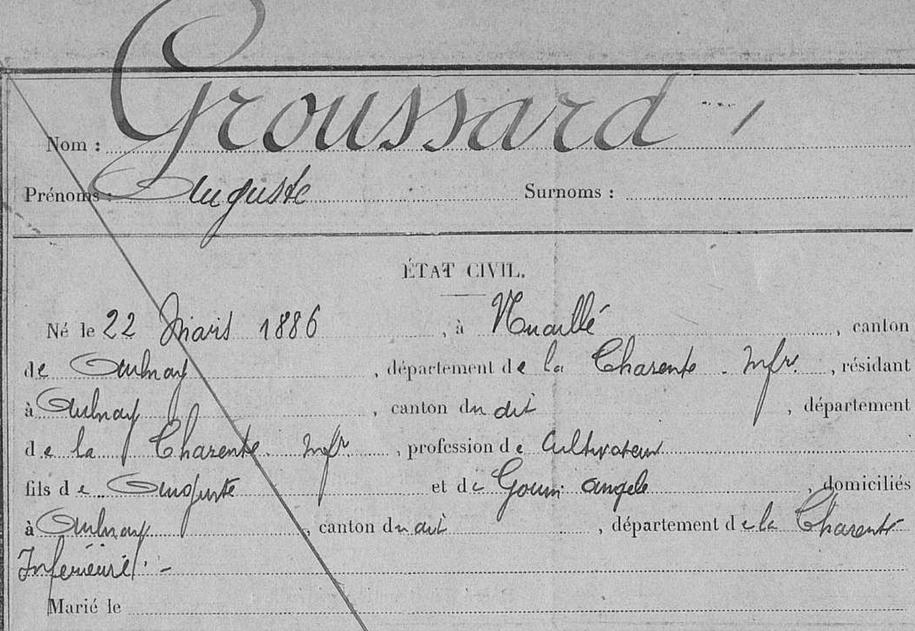 Nom : Groussard
Prénoms : Auguste Surnoms :
ÉTAT CIVIL.
Né le 22 Mars 1886, à Nuaillé, canton
de Aulnay, département de la Charente Infr, résidant
à Aulnay, canton du dit, département
de la Charente Infr, profession de Cultivateur
fils de Auguste et de Gouin Angele, domiciliés
à Aulnay, canton du dit, département de la Charente
Inférieure. -
Marié le